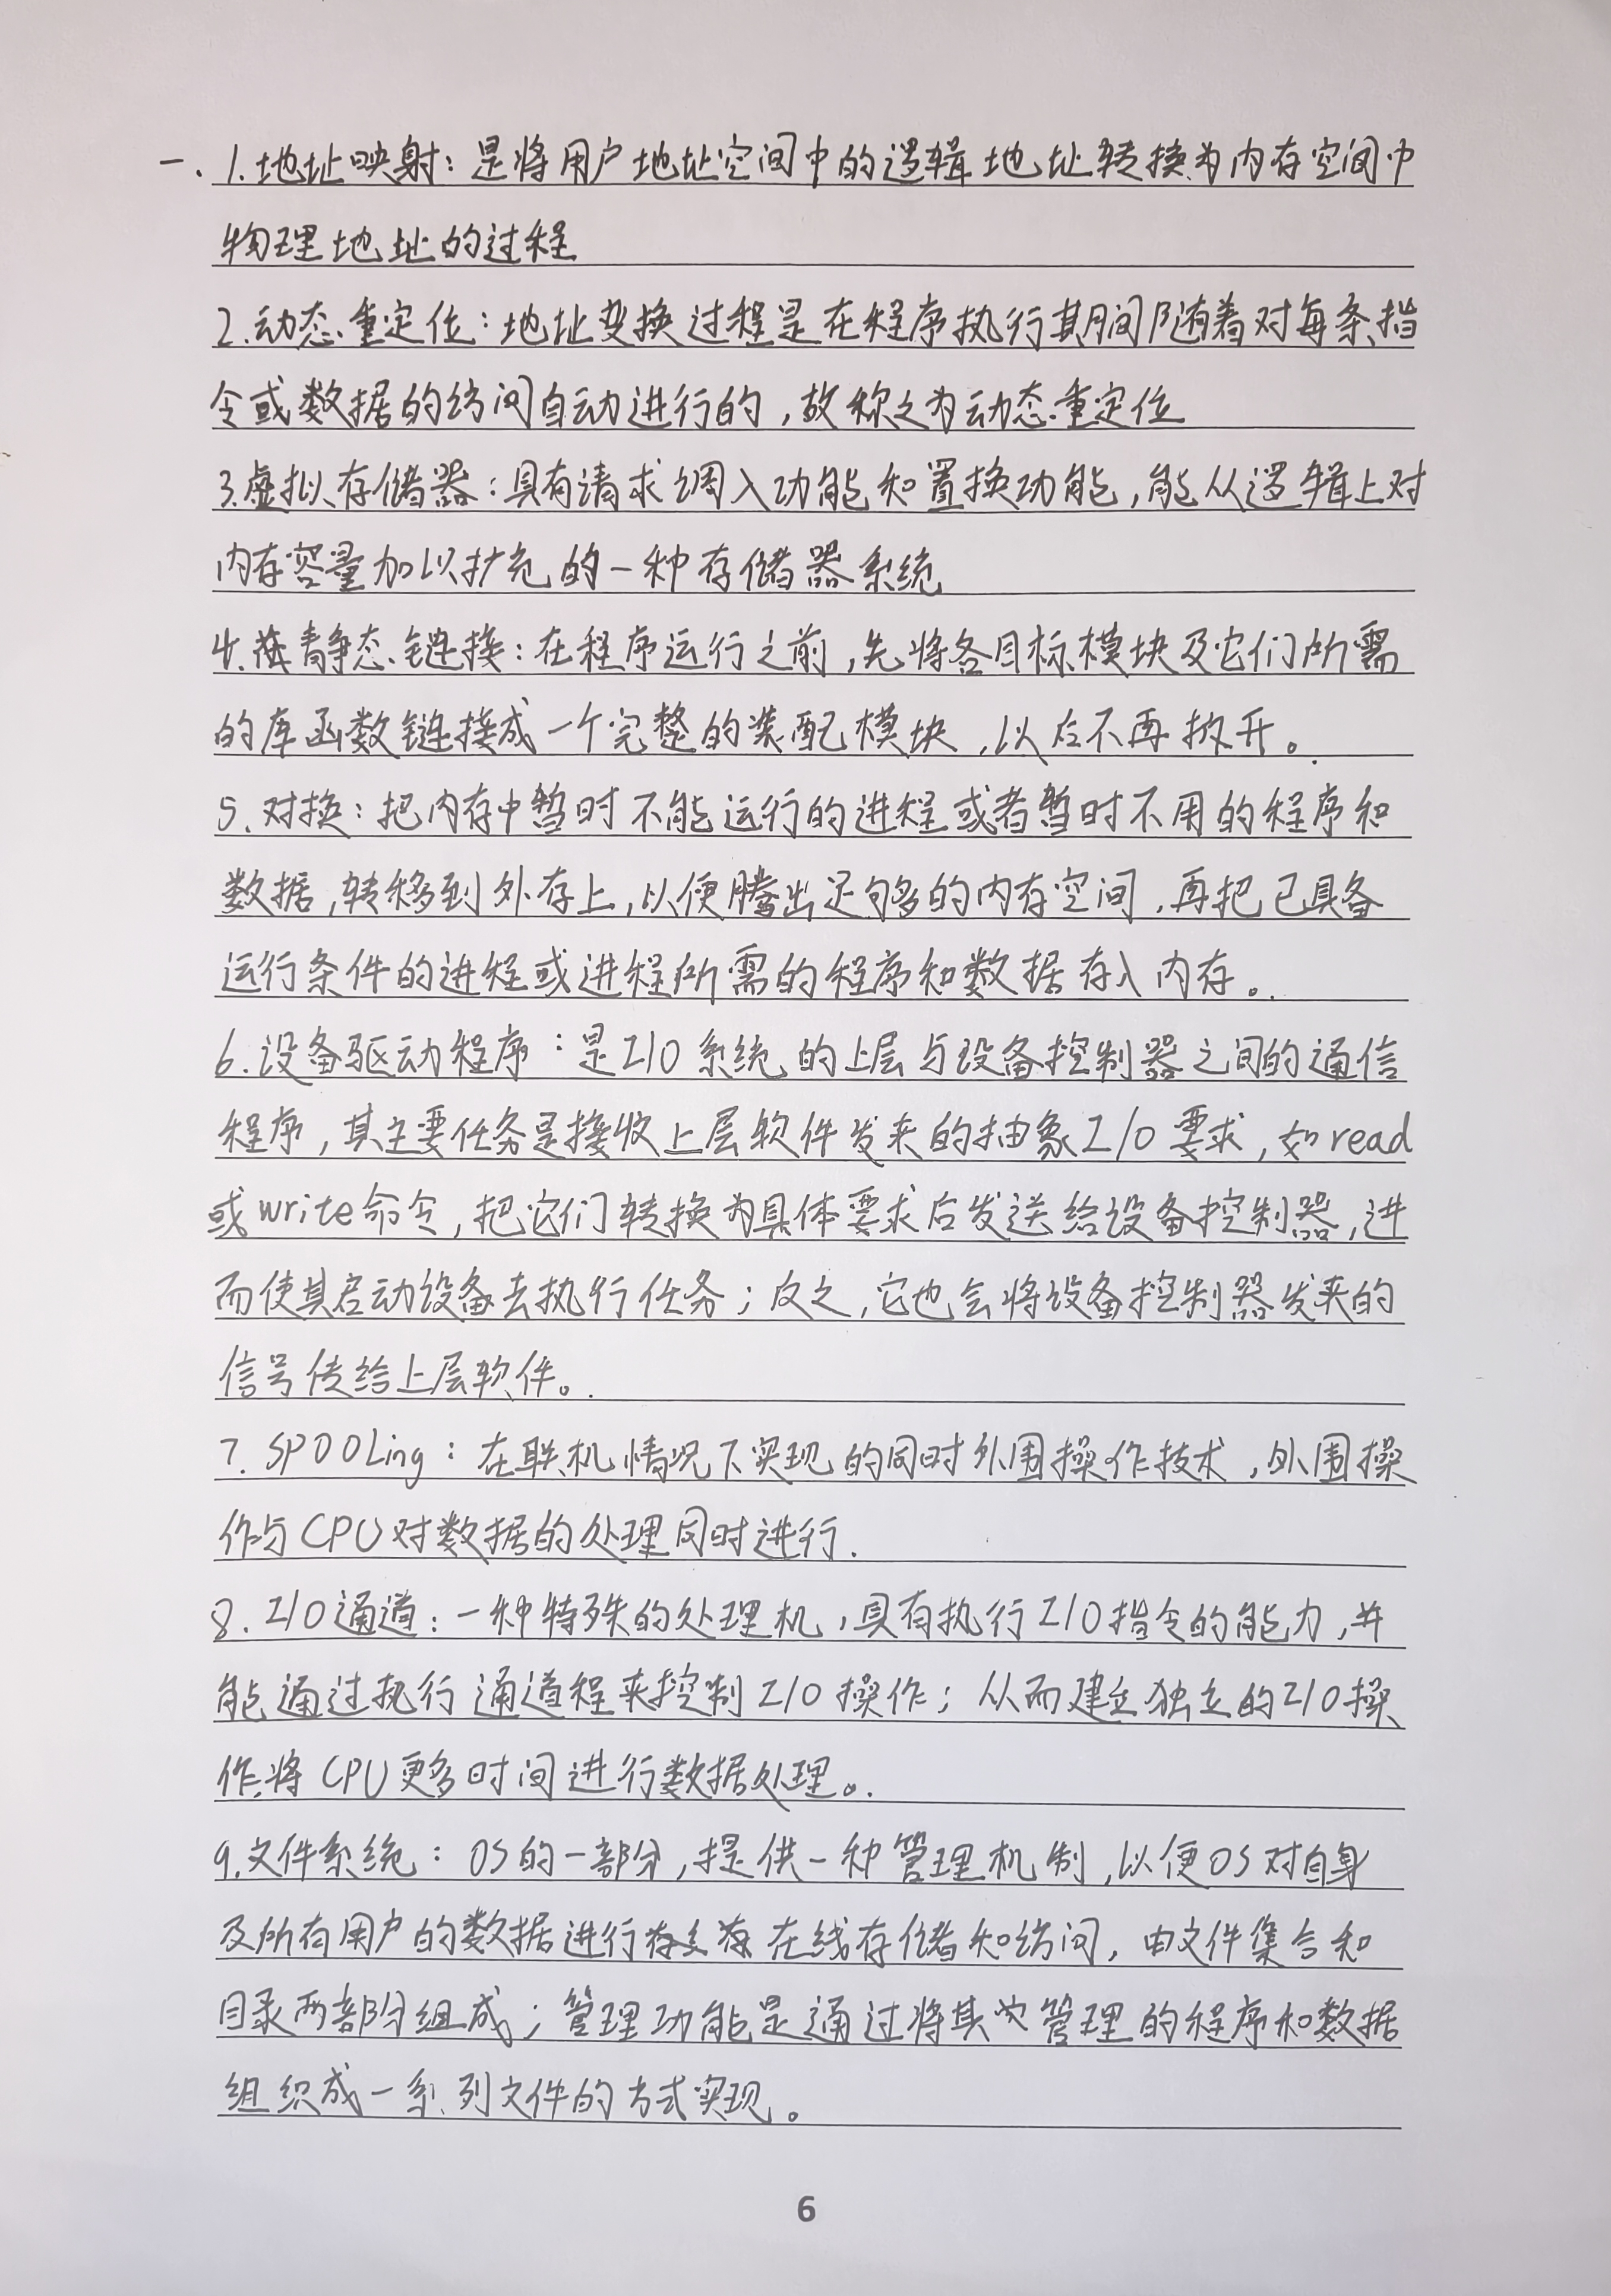 一、1.地址映射：是将用户地址空间中的逻辑地址转换为内存空间中
物理地址的过程
2.动态重定位：地址变换过程是在程序执行其期间随着对每条指
令或数据的访问自动进行的，故称之为动态重定位
3.虚拟存储器：具有请求调入功能和置换功能，能从逻辑上对
内存容量加以扩充的一种存储器系统
4.静态链接：在程序运行之前，先将各目标模块及它们所需
的库函数链接成一个完整的装配模块，以后不再拆开。
5.对换：把内存中暂时不能运行的进程或者暂时不用的程序和
数据，转移到外存上，以便腾出足够多的内存空间，再把已具备
运行条件的进程或进程所需的程序和数据存入内存。
6.设备驱动程序：是I/O系统的上层与设备控制器之间的通信
程序，其主要任务是接收上层软件发来的抽象I/O要求，如read
或write命令，把它们转换为具体要求后发送给设备控制器，进
而使其启动设备去执行任务；反之，它也会将设备控制器发来的
信号传给上层软件。
7.SPOOLing：在联机情况下实现的同时外围操作技术，外围操
作与CPU对数据的处理同时进行.
8.I/O通道：一种特殊的处理机，具有执行I/O指令的能力，并
能通过执行通道程来控制I/O操作；从而建立独立的I/O操
作,将CPU更多时间进行数据处理。
9.文件系统：OS的一部分，提供一种管理机制，以便OS对自身
及所有用户的数据进行在线存储和访问，由文件集合和
目录两部分组成；管理功能是通过将其管理的程序和数据
组织成一系列文件的方式实现。
6